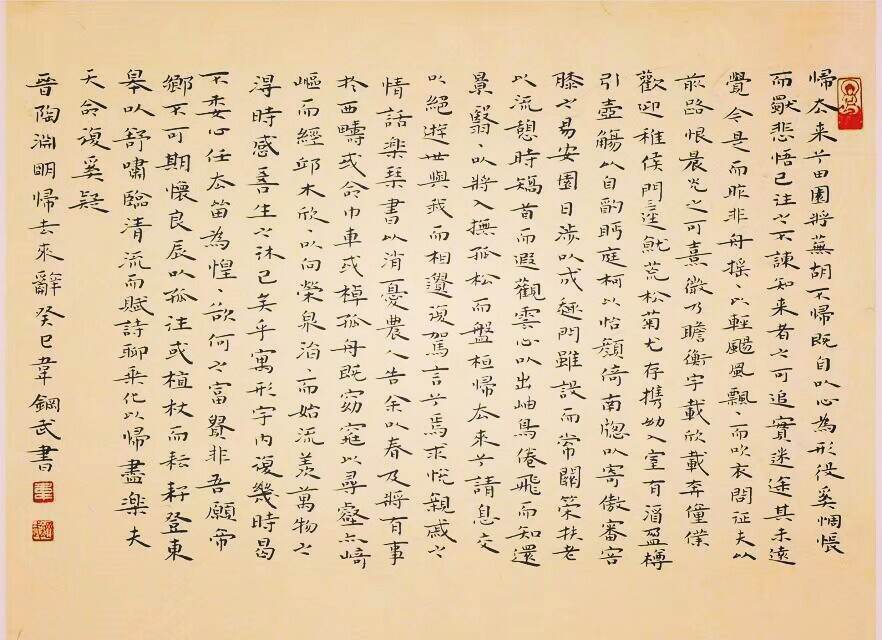 帰去来兮田園將蕪胡不帰既自以心為形役奚惆悵
而獨悲悟已往之不諫知来者之可追實迷途其未遠
覺今是而昨非舟摇〻以輕颺風飄〻而吹衣問征夫以
前路恨晨光之可熹微乃瞻衡宇載欣載奔僮僕
歡迎稚候門三逕就荒松菊尤存携幼入室有酒盈樽
引壺觴以自酌眄庭柯以怡顏倚南牕以寄傲審容
膝之易安園日涉以成趣門雖設而常關策扶老
以流憩時矯首而遐觀雲心以出岫鳥倦飛而知還
景翳〻以將入撫孤松而盤桓帰去来兮請息交
以絕遊世與我而相違復駕言兮焉求悅親戚之
情話楽琴書以消憂農人告余以春及將有事
於西疇或命巾車或棹孤舟既窈窕以尋壑亦崎
嶇而經邱木欣〻以向榮泉涓〻而始流羨萬物之
得時感吾生之休已矣乎寓形宇内復幾時曷
不委心任去留為惶〻欲何之富貴非吾願帝
鄉不可期懷良辰以孤往或植杖而耘耔登東
皋以舒嘯臨清流而賦詩聊乘化以帰盡楽夫
天命復奚疑
晉陶淵明帰去來辭癸巳韋鋼武書